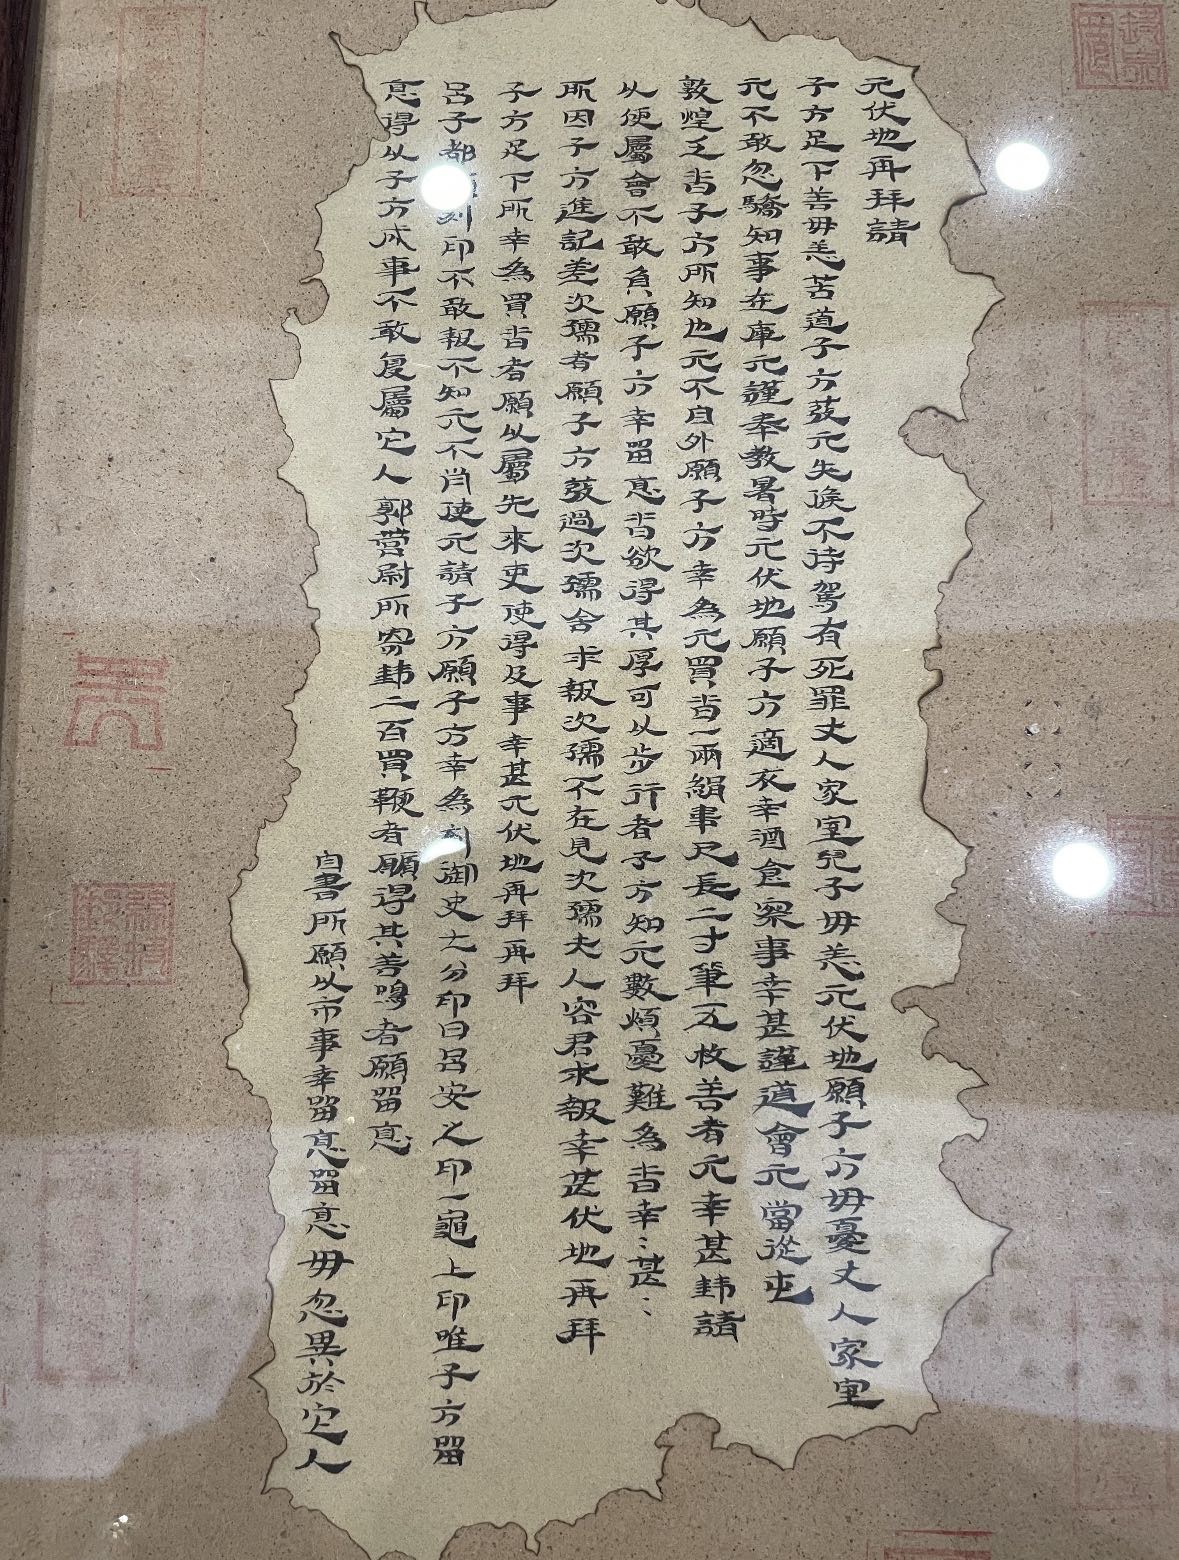 元伏地再拜請
子方足下善毋恙苦道子方發元失候不侍駕有死罪丈人家室兒子毋恙元伏地願子方毋憂丈人家室
元不敢忽驕知事在庫元謹奉教暑時元伏地願子方適衣幸酒食察事幸甚謹道會元當從屯
敦煌乏沓子方所知也元不自外願子方幸為元買沓一兩絹韋尺長二寸筆五枚善者元幸甚請
以便屬會不敢負願子方幸留意沓欲得其厚可以步行者子方知元數煩憂難為沓幸〻甚〻
所因子方進記差次孺者願子方發過次孺舍求報次孺不在見次孺夫人容君求報幸甚伏地再拜
子方足下所幸為買沓者願以屬先來吏使得及事幸甚元伏地再拜再拜
呂子都刻印不敢報不知元不肖使元請子方願子方幸為刻御史七分印曰呂安之印一龜上印唯子方留
意得以子方成事不敢復屬它人郭營尉所寄二百買鞭者願得其善鳴者願留意
自書所願以市事幸留意留意毋忽異於它人